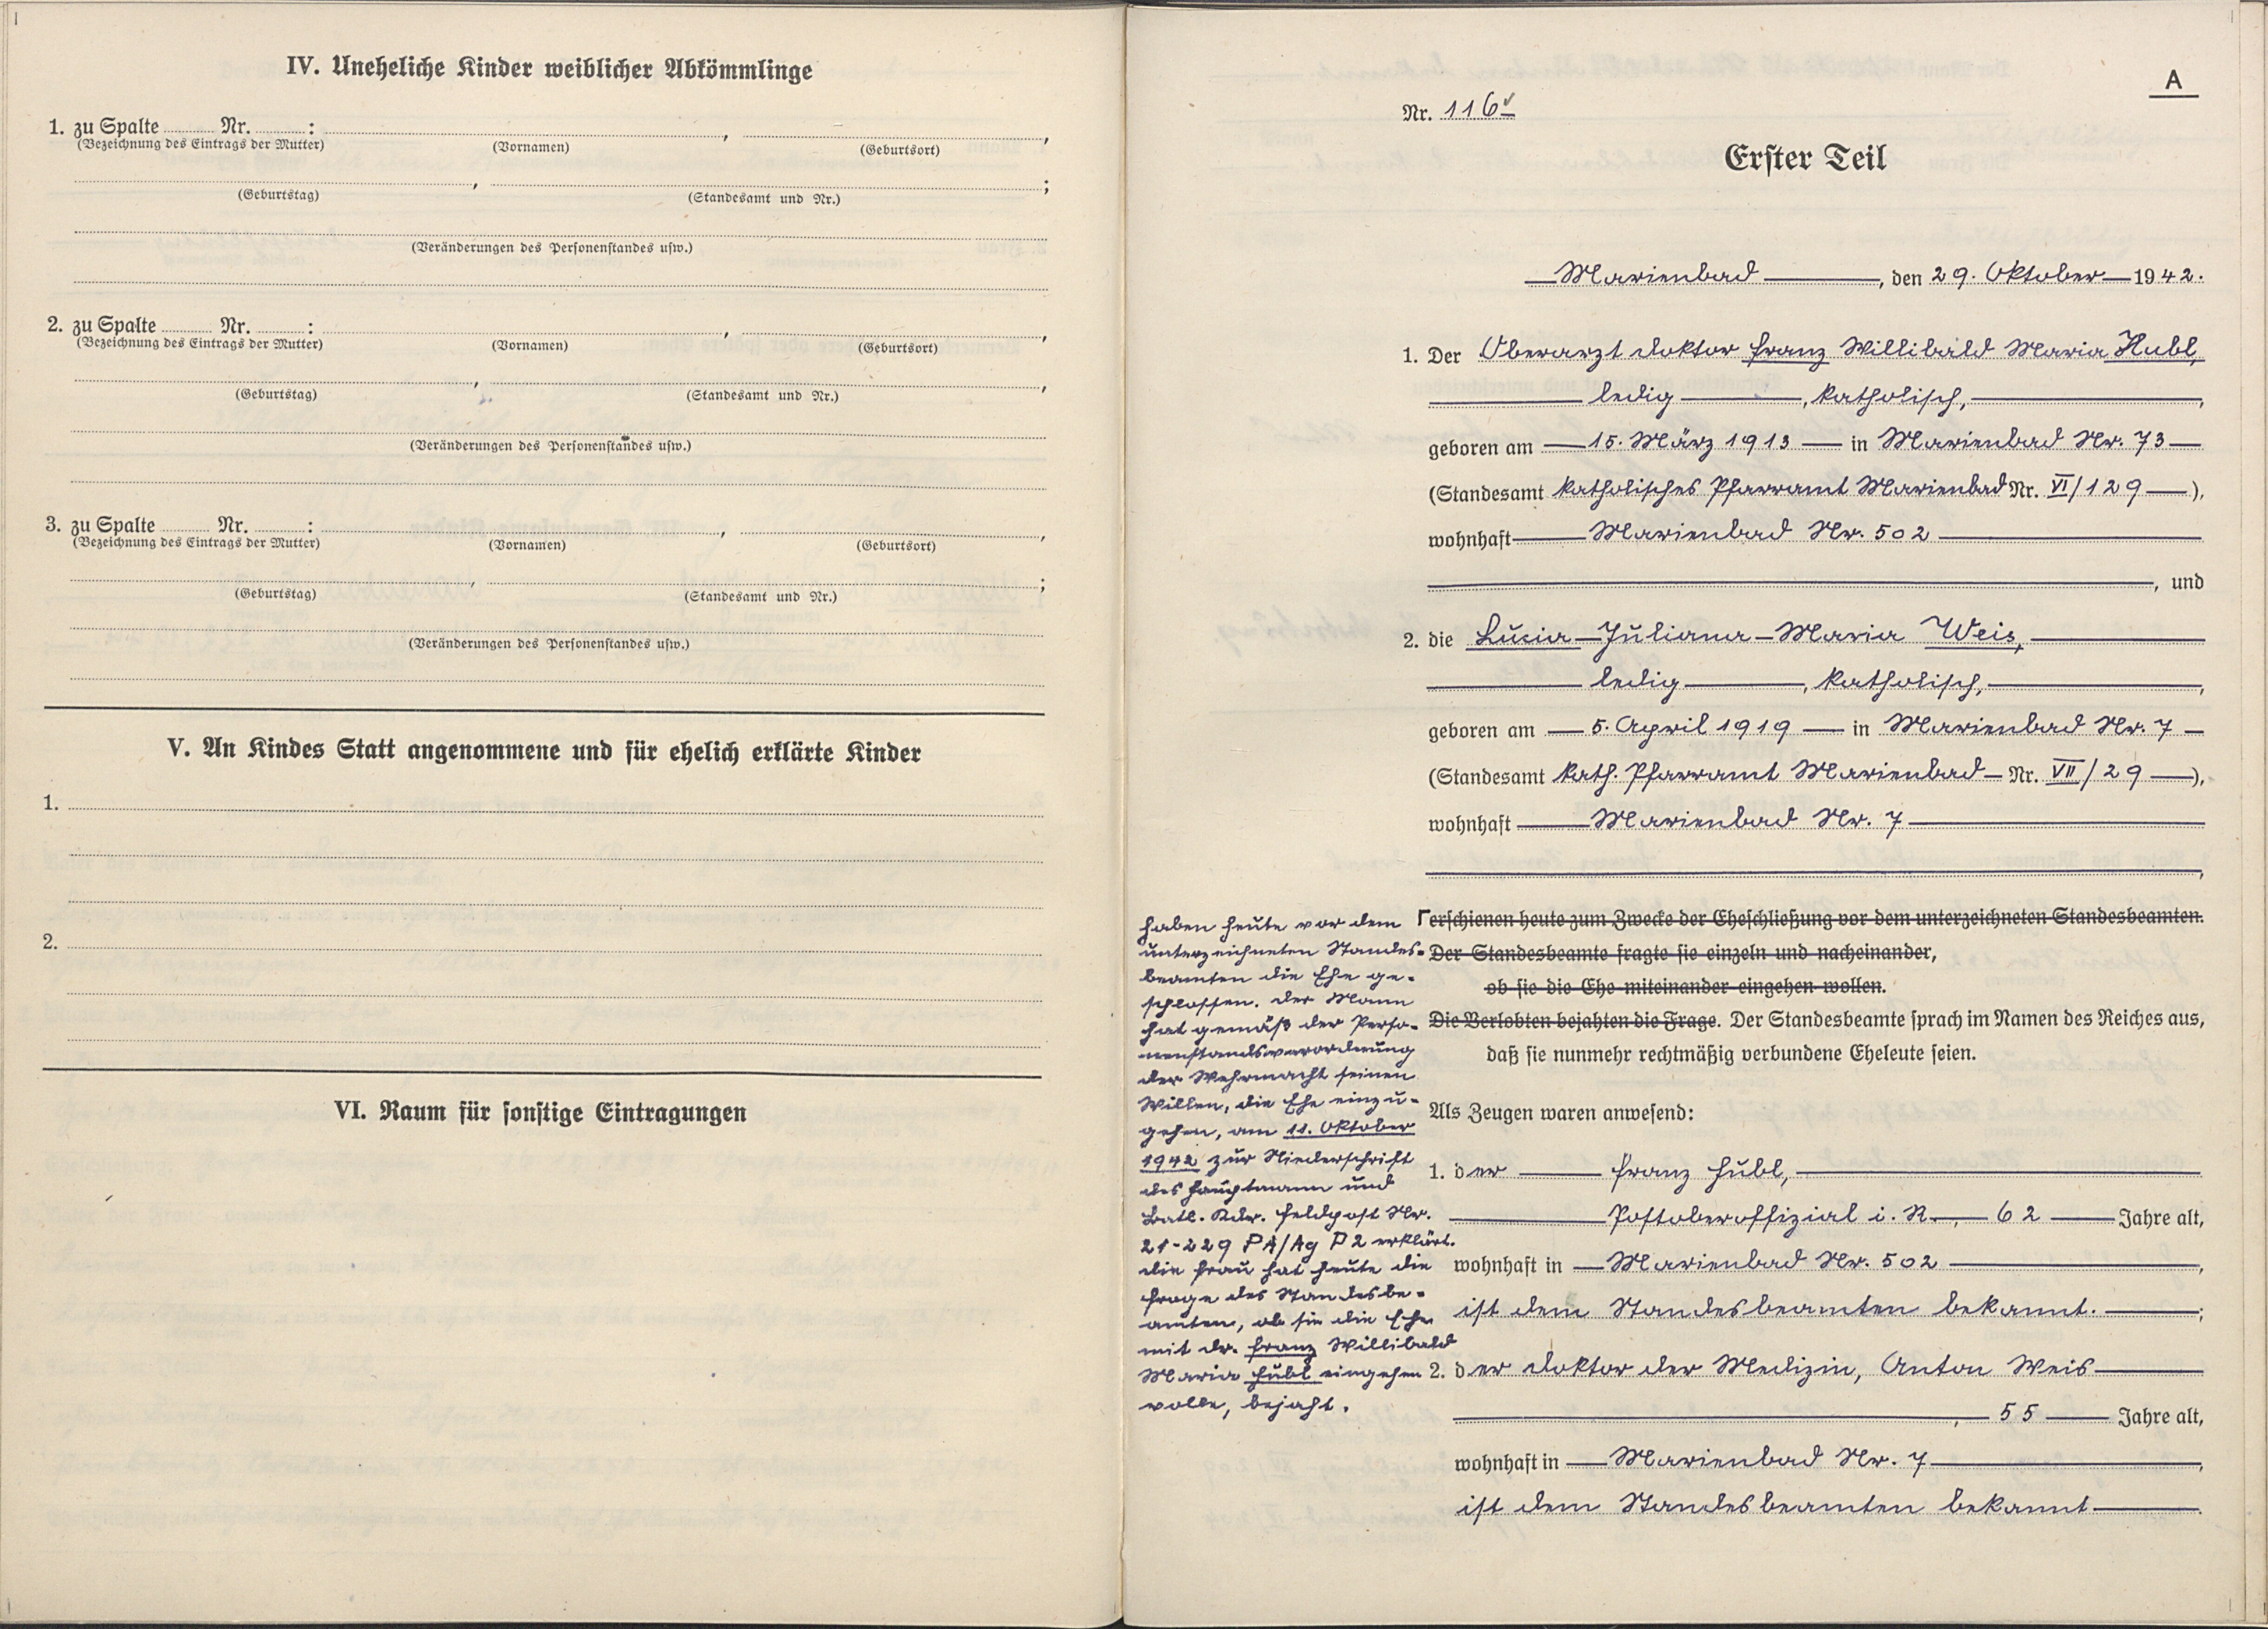 IV. Uneheliche Kinder weiblicher Abkömmlinge
1. zu Spalte ........ Nr. ........ : , ,
(Bezeichnung des Eintrags der Mutter) (Vornamen) (Geburtsort)
, ;
(Geburtstag) (Standesamt und Nr.)
(Veränderungen des Personenstandes usw.)
2. zu Spalte ........ Nr. ........ : , ,
(Bezeichnung des Eintrags der Mutter) (Vornamen) (Geburtsort)
, ,
(Geburtstag) (Standesamt und Nr.)
(Veränderungen des Personenstandes usw.)
3. zu Spalte ........ Nr. ........ : , ,
(Bezeichnung des Eintrags der Mutter) (Vornamen) (Geburtsort)
, ;
(Geburtstag) (Standesamt und Nr.)
(Veränderungen des Personenstandes usw.)
V. An Kindes Statt angenommene und für ehelich erklärte Kinder
1.
2.
VI. Raum für sonstige Eintragungen
A
Nr. 116
Erster Teil
Marienbad, den 29. Oktober 1942.
1. Der Oberarzt Doktor Franz Willibald Maria Hubl,
ledig, katholisch,
geboren am 15. März 1913 in Marienbad Nr. 73
(Standesamt katholisches Pfarramt Marienbad Nr. VI/129),
wohnhaft Marienbad Nr. 502
, und
2. die Lucia-Juliana-Maria Weis,
ledig, katholisch,
geboren am 5. April 1919 in Marienbad Nr. 7
(Standesamt kath. Pfarramt Marienbad Nr. VII/29),
wohnhaft Marienbad Nr. 7
erschienen heute zum Zwecke der Eheschließung vor dem unterzeichneten Standesbeamten.
Der Standesbeamte fragte sie einzeln und nacheinander,
ob sie die Ehe miteinander eingehen wollen.
Die Verlobten bejahten die Frage. Der Standesbeamte sprach im Namen des Reiches aus,
daß sie nunmehr rechtmäßig verbundene Eheleute seien.
haben heute vor dem
unterzeichneten Standes-
beamten die Ehe ge-
schlossen. Der Mann
hat gemäß der Perso-
nenstandsverordnung
der Wehrmacht seinen
Willen, die Ehe einzu-
gehen, am 11. Oktober
1942 zur Niederschrift
des Hauptmann und
Batl. Kdr. Feldpost Nr.
21-229 PA/Ag P2 erklärt.
Die Frau hat heute die
Frage des Standesbe-
amten, ob sie die Ehe
mit Dr. Franz Willibald
Maria Hubl eingehen
wolle, bejaht.
Als Zeugen waren anwesend:
1. der Franz Hubl,
Postoberoffizial i. R., 62 Jahre alt,
wohnhaft in Marienbad Nr. 502,
ist dem Standesbeamten bekannt.;
2. der Doktor der Medizin, Anton Weis
, 55 Jahre alt,
wohnhaft in Marienbad Nr. 7,
ist dem Standesbeamten bekannt.